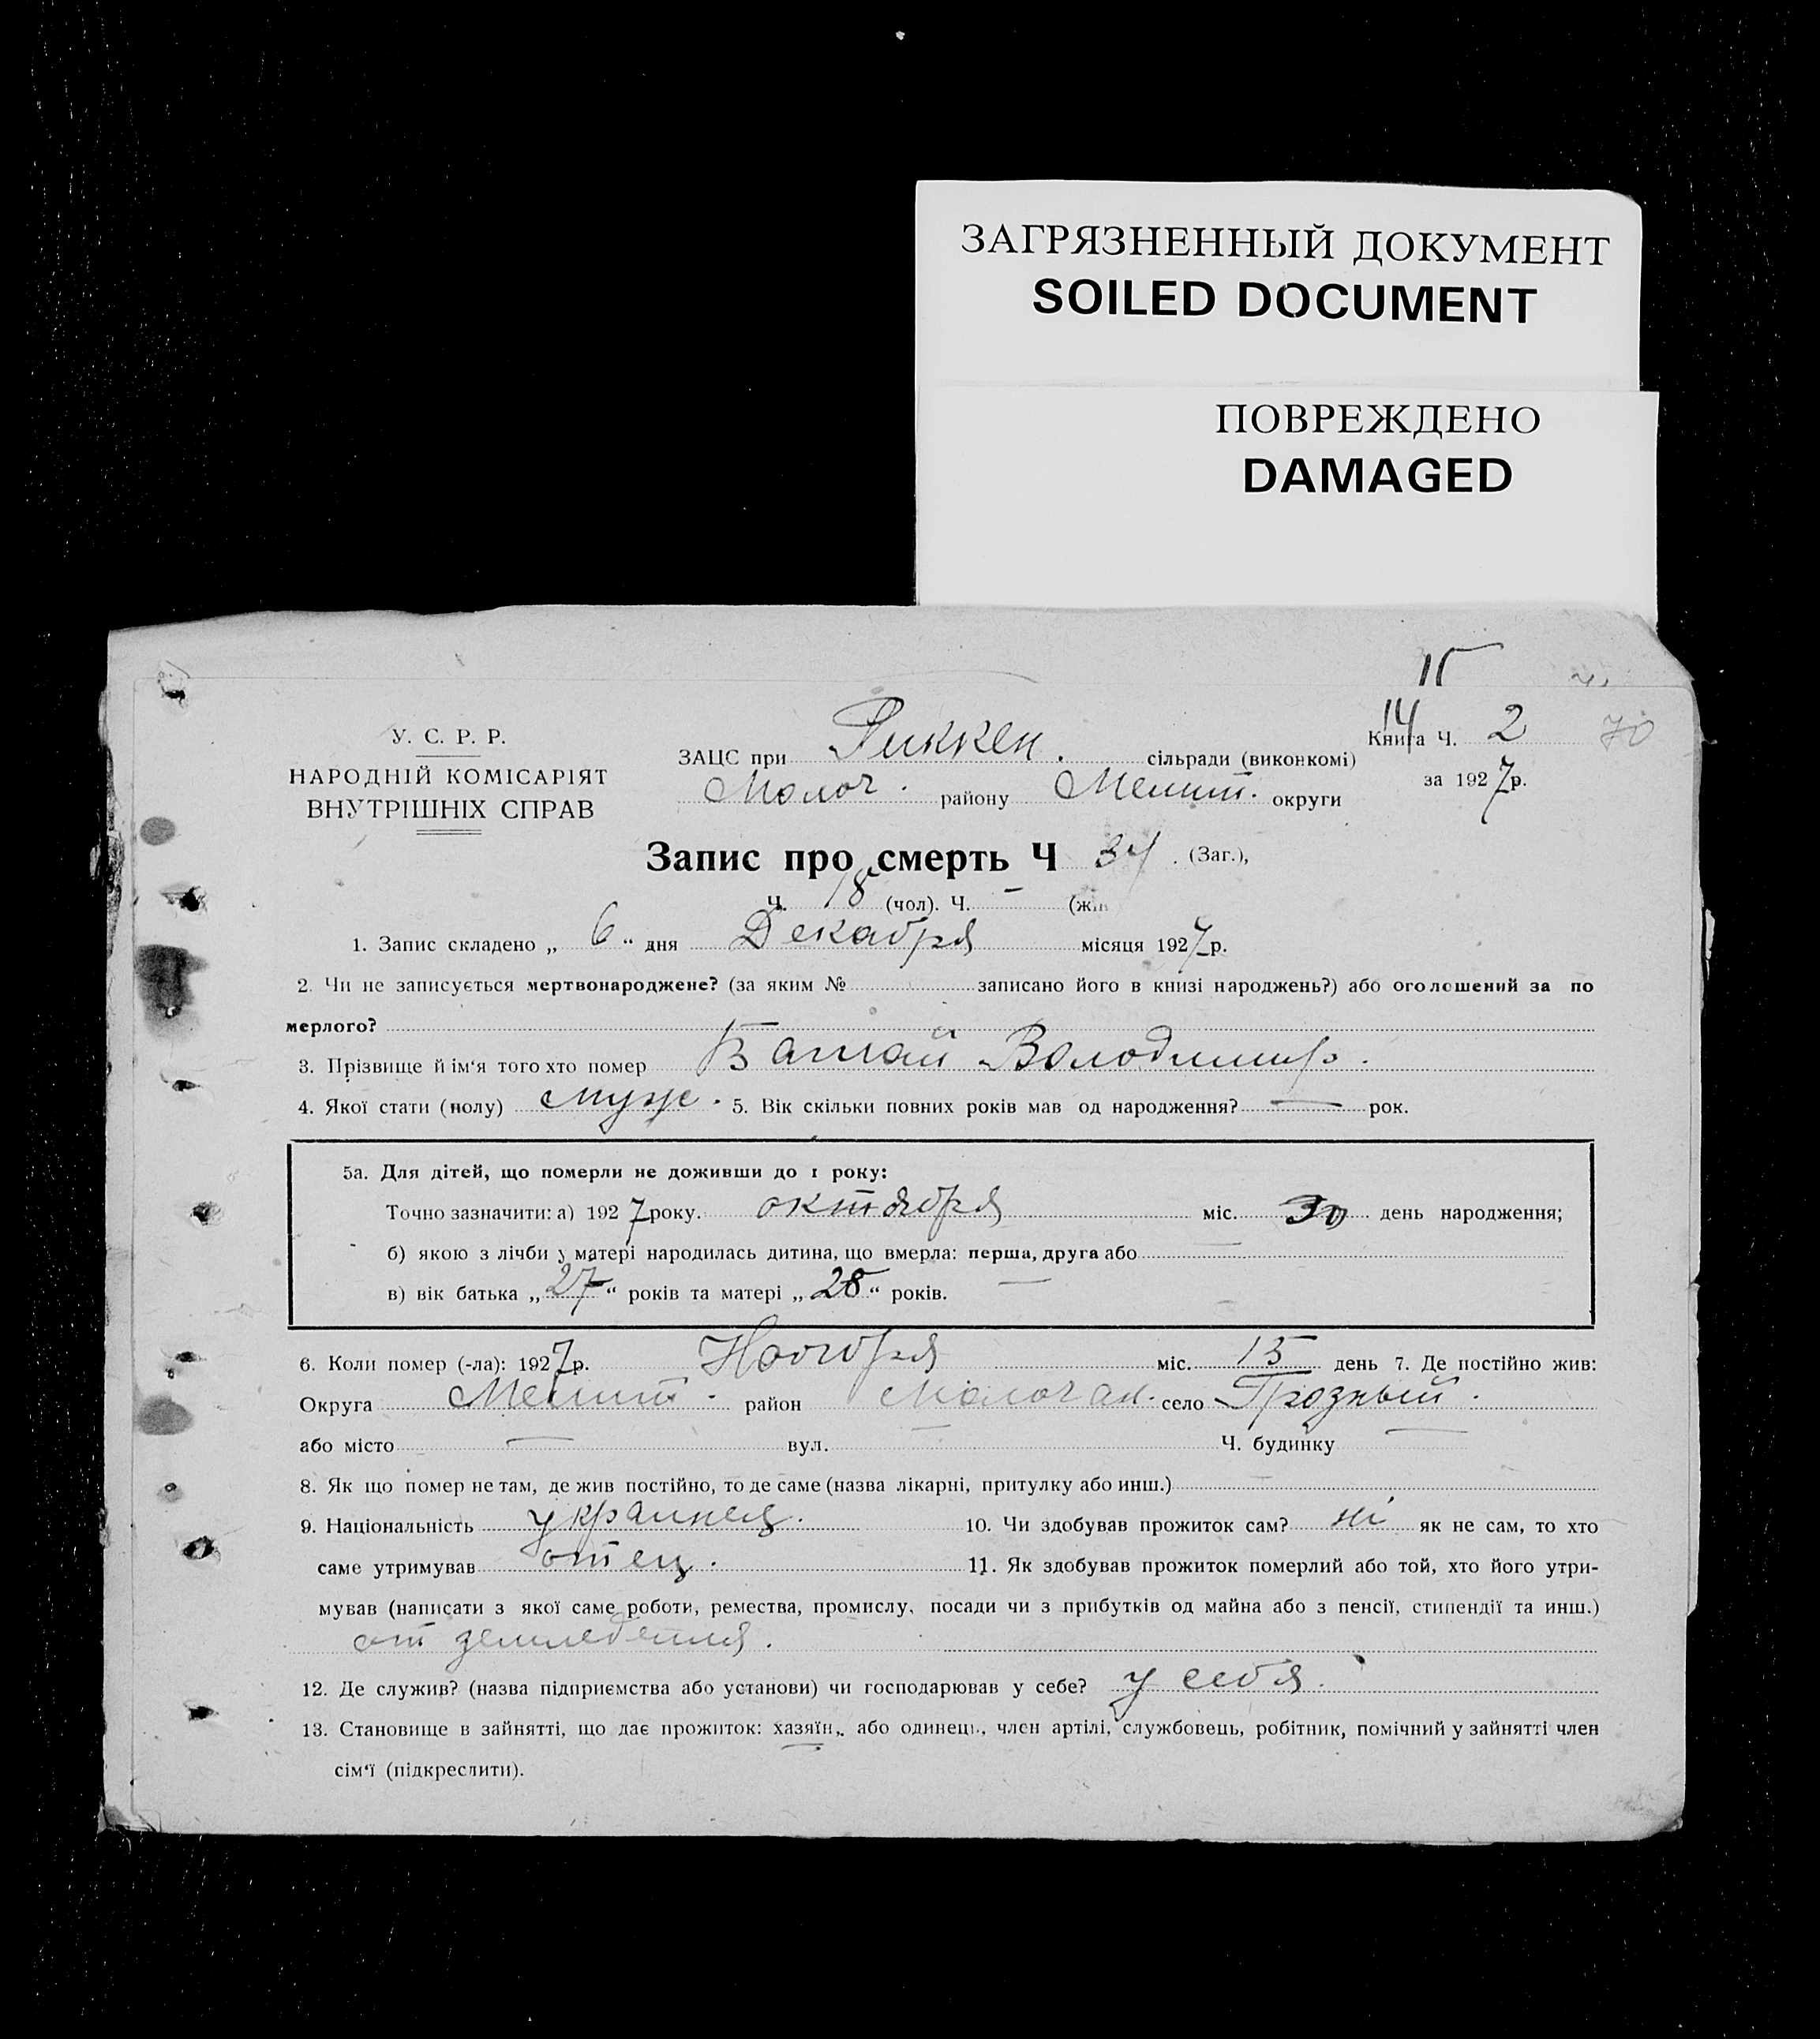 ЗАГРЯЗНЕННЫЙ ДОКУМЕНТ
SOILED DOCUMENT
ПОВРЕЖДЕНО
DAMAGED
15
14
У. С. Р. Р.
НАРОДНІЙ КОМІСАРІЯТ
ВНУТРІШНІХ СПРАВ
ЗАЦС при Риккен. сільради (виконкомі)
Молоч. району Мелит. округи
Книга Ч. 2 70
за 1927 р.
Запис про смерть Ч 34. (Заг.),
Ч. 18 (чол). Ч. — (жін
1. Запис складено „ 6 “ дня Декабря місяця 1927 р.
2. Чи не записується мертвонароджене? (за яким № записано його в книзі народжень?) або оголошений за по
мерлого?
3. Прізвище й ім‘я того хто помер Володимир.
4. Якої стати (полу) муж. 5. Вік скільки повних років мав од народження? — рок.
5а. Для дітей, що померли не доживши до 1 року:
Точно зазначити: а) 1927 року. октября міс. 30 день народження;
б) якою з лічби у матері народилась дитина, що вмерла: перша, друга або —
в) вік батька „ 27 “ років та матері „ 28 “ років. —
6. Коли помер (-ла): 1927 р. Ноября міс. 15 день 7. Де постійно жив:
Округа Мелит. район Молочан. село Грозный.
або місто — вул. — Ч. будинку —
8. Як що помер не там, де жив постійно, то де саме (назва лікарні, притулку або инш.)
9. Національність украинец. 10. Чи здобував прожиток сам? ні як не сам, то хто
саме утримував отец. 11. Як здобував прожиток померлий або той, хто його утри-
мував (написати з якої саме роботи, ремества, промислу, посади чи з прибутків од майна або з пенсії, стипендії та инш.)
от земледелия.
12. Де служив? (назва підприємства або установи) чи господарював у себе? у себя.
13. Становище в зайнятті, що дає прожиток: хазяїн, або одинець, член артілі, службовець, робітник, помічний у зайнятті член
сім‘ї (підкреслити).